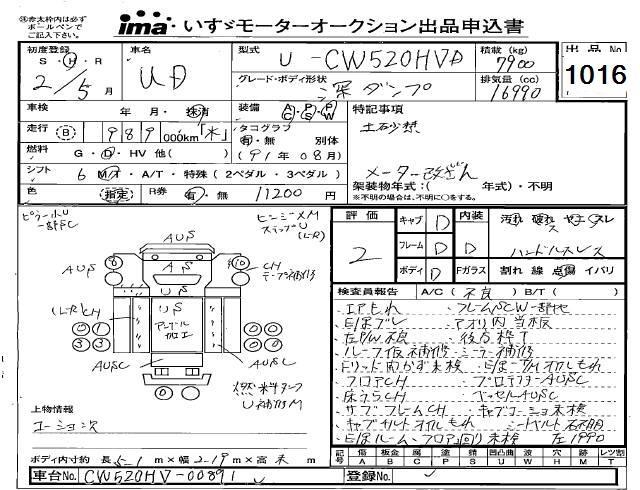 ※赤太枠内は必ず
ボールペンで
ご記入下さい。
ima いすゞモーターオークション出品申込書
初度登録 S・H・R 2/5月
車名 UD
型式 U-CW520HVD
積載(kg) 7900
出品No 1016
グレード・ボディ形状 深ダンプ
排気量(cc) 16990
車検 年 月・抹消
装備 AC・PS・PW
特記事項
土砂禁
走行 B 989 000km「不」
タコグラフ 有・無 別体
(91年08月)
燃料 G・D・HV 他( )
メーター改ざん
シフト 6 MT・A/T・特殊(2ペダル・3ペダル)
架装物年式:( 年式)・不明
※不明の場合は、不明に○をする。
色 (指定) R券 有・無 11200円
評価 2
キャブ D 内装 D 汚れ 破れ ヤニ スレ
フレーム D D ハンドルスレス
ボディ D Fガラス 割れ 線 点傷 イバリ
ピラーホU
一部SC
ヒンジXM
ステップU
(L・R)
AUS
AUS AS CH
テープ補修
US
(L・R)CH US
アングル
加工
AUSC AUSC
燃料タンク
U補修M
検査員報告 A/C(不良)B/T( )
・エアもれ ・フレームSCW一部他
・E/gブレ ・アオリ内当板
・左P/W不良 ・後方枠T
・ルーフ仮補修・ミラー補修
・Fリッド開かず未検 ・E/g・T/Mオイルもれ
・フロアCH ・プロテクターAUSC
・床うらCH ・ベッセルAUSC
・サブフレームCH ・キャブコーション未検
・キャブチルトオイルもれ ・シートベルト不明
・E/gルーム・フロア回り未検 左1990
上物情報
ユーション欠
ボディ内寸約 長5-1m×幅2-19m×高未m
記号 傷 A 板金 B 腐 C 塗 P 錆 S 凹凸曲 U 波 W 穴 H 欠 M レツ割 T
車台No. CW520HV-00891
登録No.